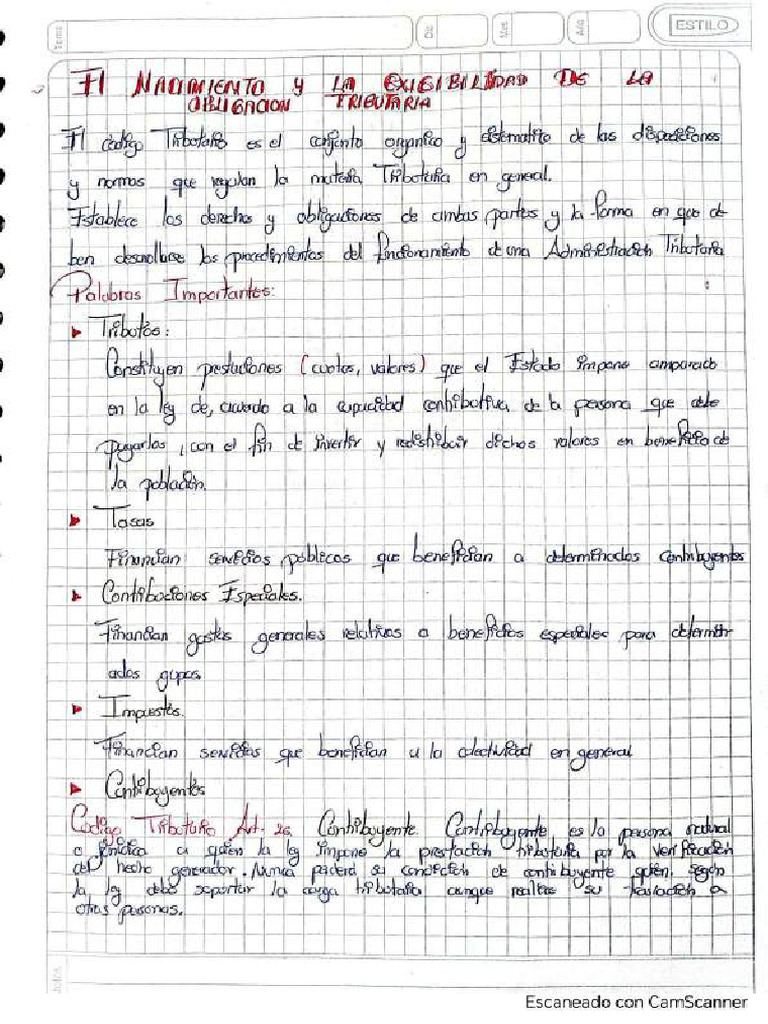 Tema
Día
Mes
Año
ESTILO
El NACIMIENTO Y LA EXIGIBILIDAD DE LA
OBLIGACION TRIBUTARIA
El código Tributario es el conjunto organico y sistematico de las disposiciones
y normas que regulan la materia Tributaria en general.
Establece los derechos y obligaciones de ambas partes y la forma en que de
ben desarrollarse los procedimientos del funcionamiento de una Administración Tributaria
Palabras Importantes:
Tributos:
Constituyen prestaciones (cuotas, valores) que el Estado impone amparado
en la ley de, acuerdo a la capacidad contributiva, de la persona que debe
pagarlos, con el fin de invertir y redistribuir dichos valores en beneficio de
la población.
Tasas
Financian servicios públicos que benefician a determinados contribuyentes
Contribuciones Especiales.
Financian gastos generales relativos a beneficios especiales para determin
ados grupos
Impuestos.
Financian servicios que benefician a la colectividad en general
Contribuyentes
Codigo Tributario Art. 26. Contribuyente. Contribuyente es la persona natural
o juridica a quien la ley impone la prestación tributaria por la verificación
del hecho generador. Nunca perderá su condición de contribuyente quien, según
la ley debe soportar la carga tributaria aunque realice su traslación a
otras personas.
Escaneado con CamScanner